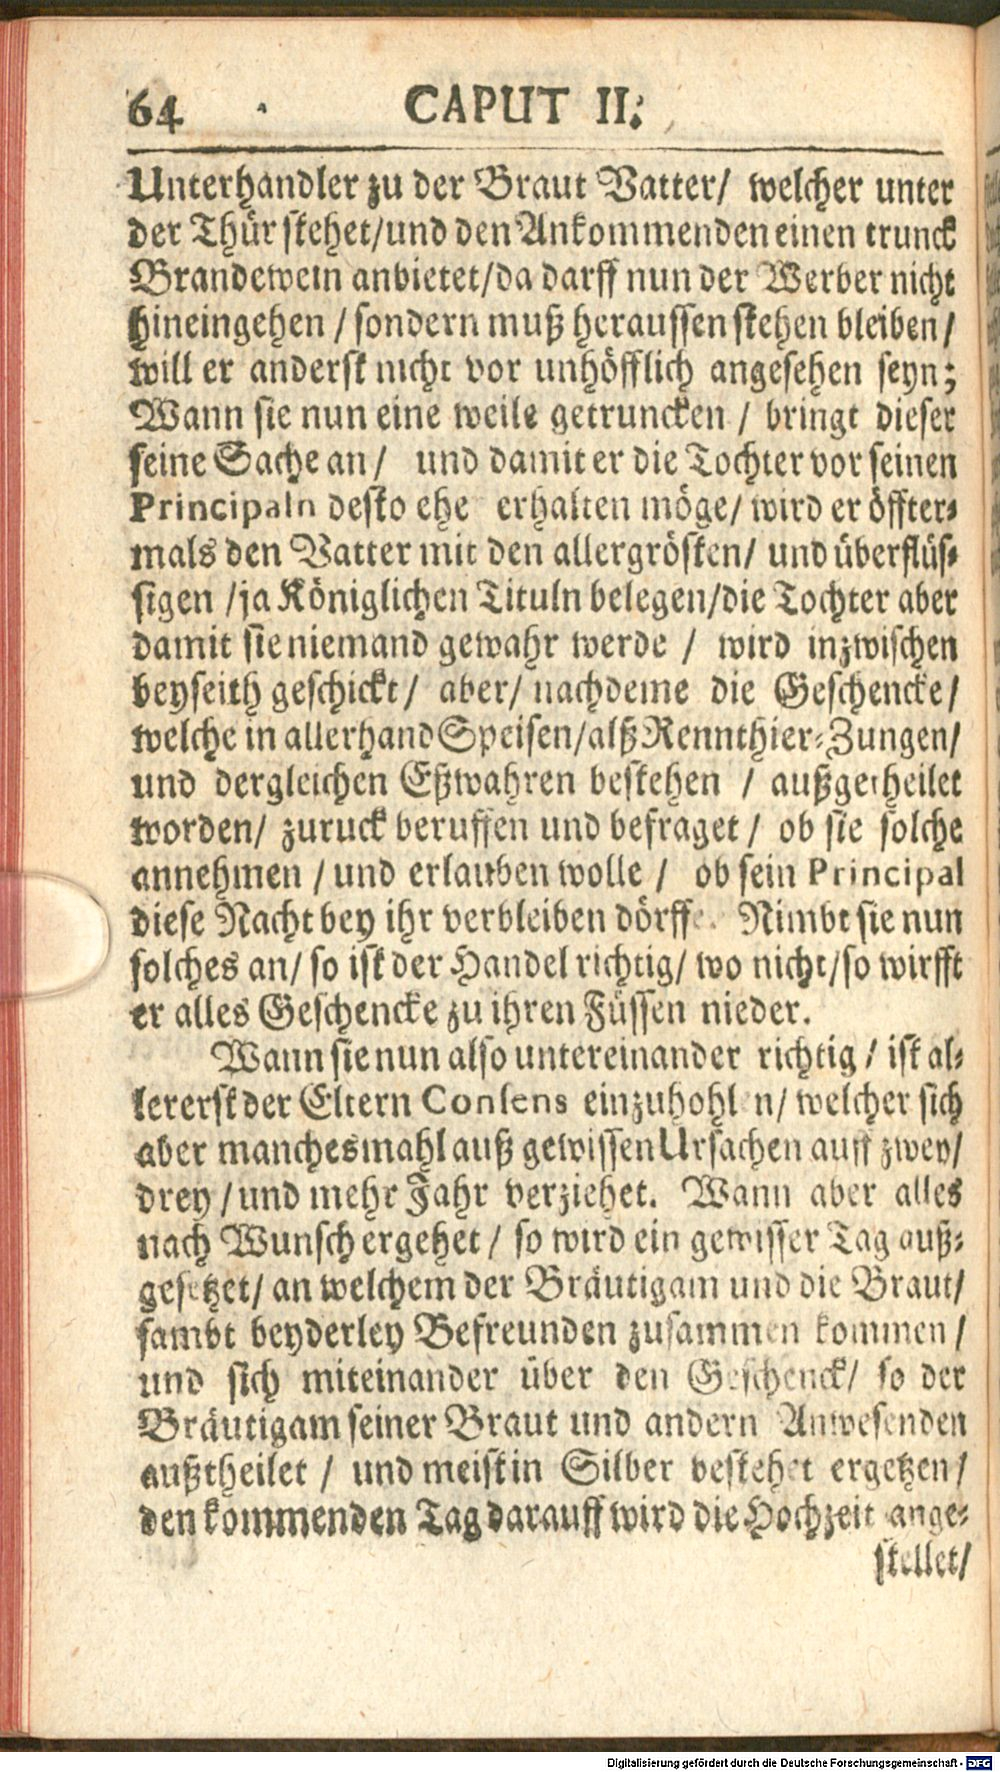 64 CAPUT II.
Unterhandler zu der Braut Vatter/ welcher unter
der Thür stehet/und den Ankommenden einen trunck
Brandewein anbietet/da darff nun der Werber nicht
hineingehen / sondern muß heraussen stehen bleiben/
will er anderst nicht vor unhöfflich angesehen seyn;
Wann sie nun eine weile getruncken / bringt dieser
seine Sache an/ und damit er die Tochter vor seinen
Principaln desto ehe erhalten möge/ wird er öffter-
mals den Vatter mit den allergrösten/ und überflüs-
sigen /ja Königlichen Tituln belegen/die Tochter aber
damit sie niemand gewahr werde / wird inzwischen
beyseith geschickt/ aber/ nachdeme die Geschencke/
welche in allerhand Speisen/alß Rennthier-Zungen/
und dergleichen Eßwahren bestehen / außgetheilet
worden/ zuruck beruffen und befraget / ob sie solche
annehmen / und erlauben wolle / ob sein Principal
diese Nacht bey ihr verbleiben dörffe. Nimbt sie nun
solches an/ so ist der Handel richtig/ wo nicht/so wirfft
er alles Geschencke zu ihren Füssen nieder.
Wann sie nun also untereinander richtig / ist al-
lererst der Eltern Consens einzuhohlen/ welcher sich
aber manchesmahl auß gewissen Ursachen auff zwey/
drey / und mehr Jahr verziehet. Wann aber alles
nach Wunsch ergehet / so wird ein gewisser Tag auß-
gesetzet/ an welchem der Bräutigam und die Braut/
sambt beyderley Befreunden zusammen kommen /
und sich miteinander über den Geschenck/ so der
Bräutigam seiner Braut und andern Anwesenden
außtheilet / und meist in Silber bestehet ergetzen/
den kommenden Tag darauff wird die Hochzeit ange-
stellet/
Digitalisierung gefördert durch die Deutsche Forschungsgemeinschaft - DFG